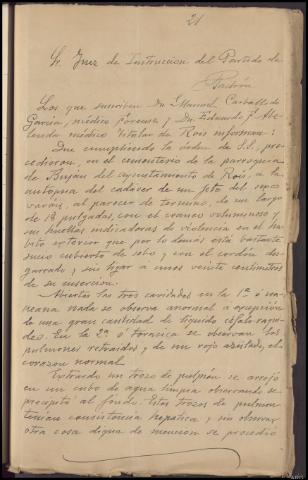 21
Sr. Juez de Instruccion del Partido de
Padrón
Los que suscriben Dn. Manuel Carballido
García, médico forense y Dn. Eduardo Fz. Abe-
lenda médico titular de Rois informan:
Que cumpliendo la órden de S.S., pro-
cedieron, en el cementerio de la parroquia
de Buján del ayuntamiento de Rois, a la
autopsia del cadáver de un feto del sexo
varón, al parecer de término, de un largo
de 18 pulgadas, con el craneo voluminoso y
sin huellas indicadoras de violencia en el ha-
bito exterior que por lo demás está bastante
sucio cubierto de sebo y con el cordon des-
garrado y sin ligar a unos veinte centimetros
de su insercion.
Abiertas las tres cavidades en la 1ª ó cra-
neana nada se observa anormal a excepción
de una gran cantidad de líquido céfalo raqui-
deo. En la 2ª ó toracica se observan los
pulmones retraidos y de un rojo azulado, el
corazon normal.
Extraido un trozo de pulmón se arrojó
en un cubo de agua limpia observando se
precipitó al fondo. Estos trozos de pulmon
tenían consistencia hepatica y sin observar
otra cosa digna de mencion se procedió